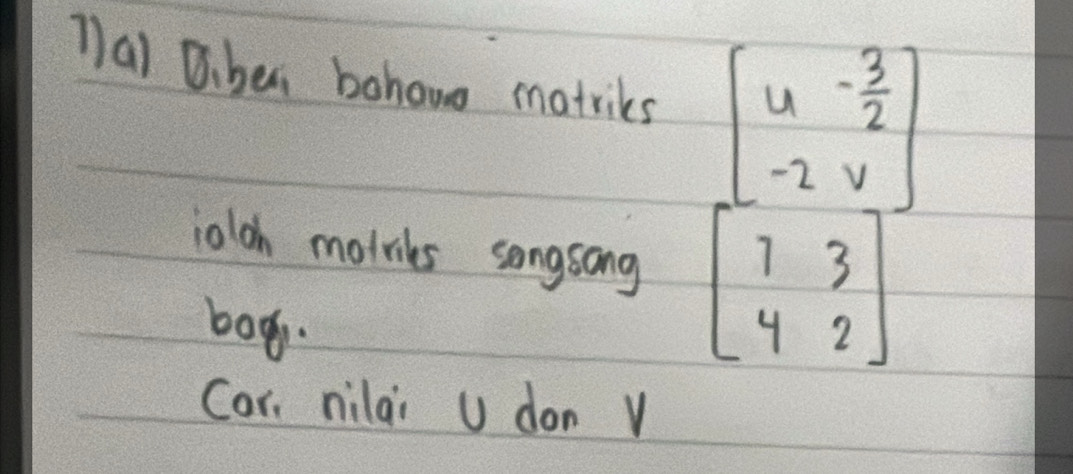 7)a) Diberi bahawa matriks [u -3/2
-2 v]
ialah matriks songsang [7 3
bagi. 4 2]
Cari nilai u dan v